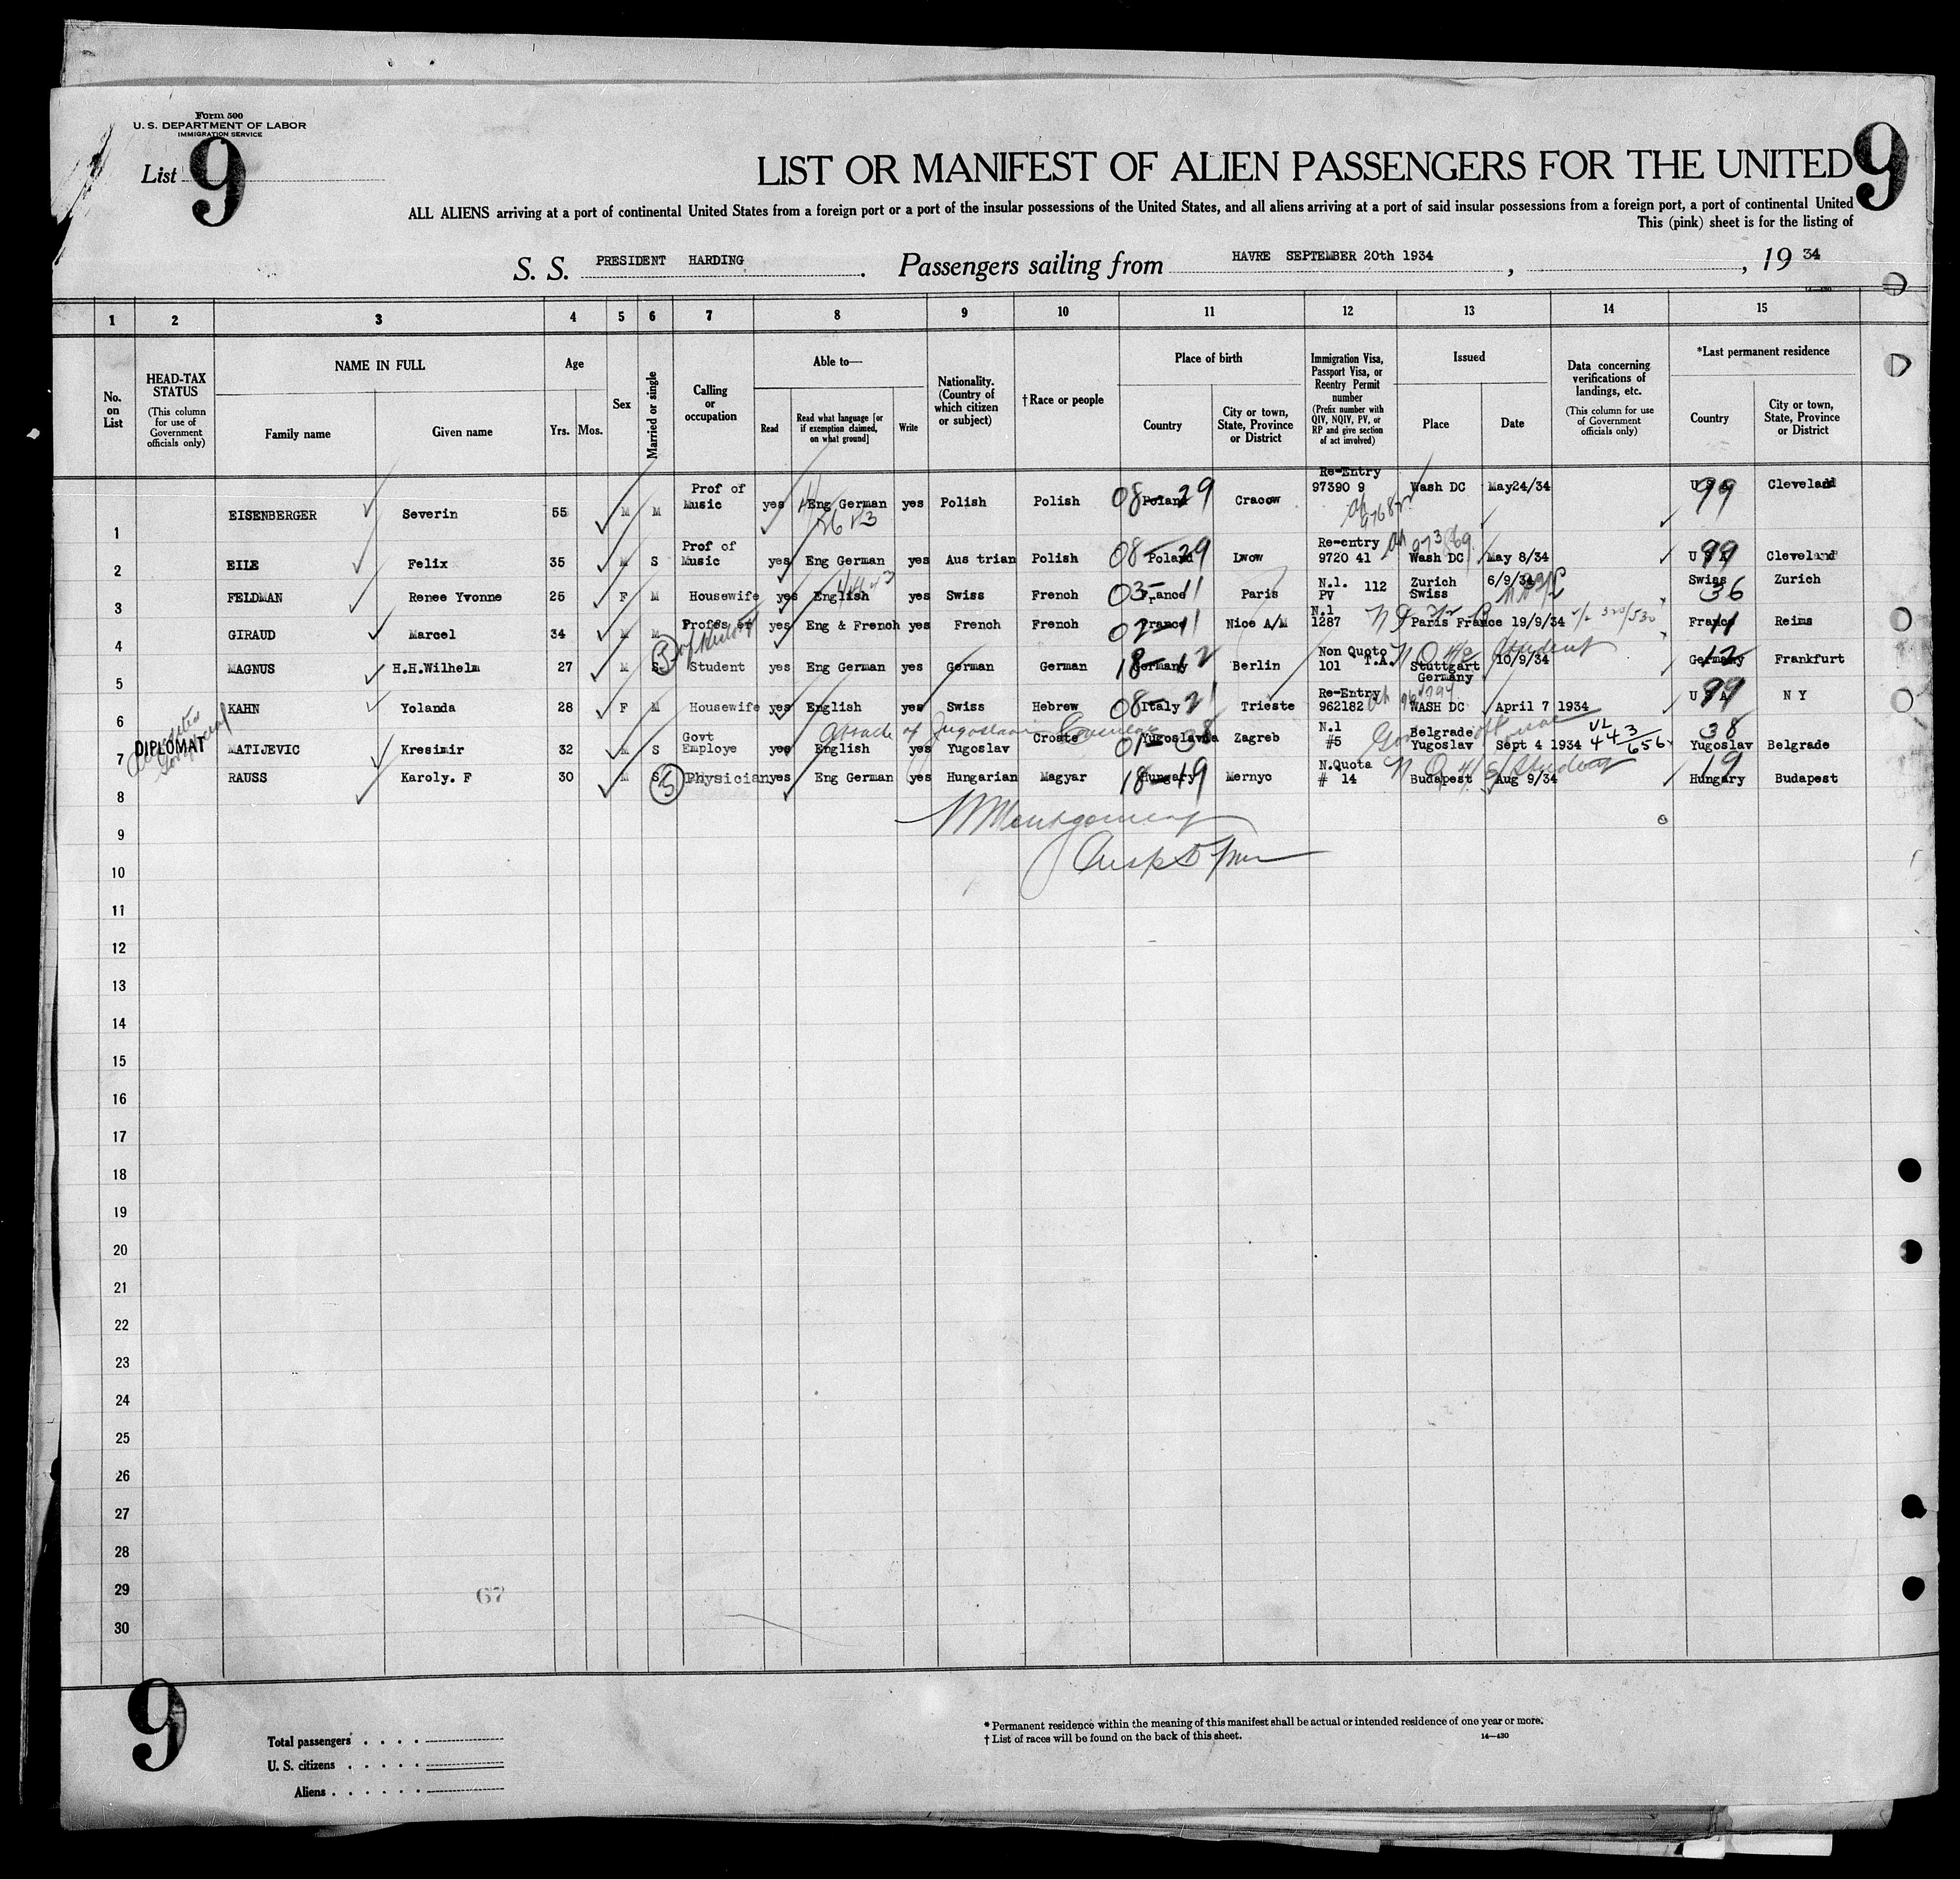 Form 500
U. S. DEPARTMENT OF LABOR
IMMIGRATION SERVICE
List 9
9
LIST OR MANIFEST OF ALIEN PASSENGERS FOR THE UNITED
ALL ALIENS arriving at a port of continental United States from a foreign port or a port of the insular possessions of the United States, and all aliens arriving at a port of said insular possessions from a foreign port, a port of continental United
This (pink) sheet is for the listing of
S. S. PRESIDENT HARDING. Passengers sailing from HAVRE SEPTEMBER 20th 1934, , 19 34
1 2 3 4 5 6 7 8 9 10 11 12 13 14 15
No. on List
HEAD-TAX STATUS (This column for use of Government officials only)
NAME IN FULL Family name Given name
Age Yrs. Mos.
Sex
Married or single
Calling or occupation
Able to— Read Read what language [or if exemption claimed, on what ground] Write
Nationality. (Country of which citizen or subject)
†Race or people
Place of birth Country City or town, State, Province or District
Immigration Visa, Passport Visa, or Reentry Permit number (Prefix number with QIV, NQIV, PV, or RP and give section of act involved)
Issued Place Date
Data concerning verifications of landings, etc. (This column for use of Government officials only)
*Last permanent residence Country City or town, State, Province or District
1 EISENBERGER Severin 55 M M Prof of Music yes Eng German yes Polish Polish 08-29 Poland Cracow Re-Entry 97390 9 Wash DC May24/34 U S A 99 Cleveland
2 EILE Felix 35 M S Prof of Music yes Eng German yes Aus trian Polish 08-29 Poland Lwow Re-entry 9720 41 Wash DC May 8/34 U S A 99 Cleveland
3 FELDMAN Renee Yvonne 25 F M Housewife yes English yes Swiss French 03-11 France Paris N.1. PV 112 Zurich Swiss 6/9/34 Swiss 36 Zurich
4 GIRAUD Marcel 34 M M Profes or yes Eng & French yes French French 02-11 France Nice A/M N.1 1287 Paris France 19/9/34 France 11 Reims
5 MAGNUS H.H.Wilhelm 27 M S Student yes Eng German yes German German 18-12 Germany Berlin Non Quoto 101 T.A. Stuttgart Germany 10/9/34 Student Germany 12 Frankfurt
6 KAHN Yolanda 28 F M Housewife yes English yes Swiss Hebrew 08 21 Italy Trieste Re-Entry 962182 WASH DC April 7 1934 U S A 99 N Y
7 DIPLOMAT MATIJEVIC Kresimir 32 M S Govt Employe yes English yes Yugoslav Croate 01-38 Yugoslavia Zagreb N.1 #5 Belgrade Yugoslav Sept 4 1934 VL 443/656 Yugoslav 38 Belgrade
8 RAUSS Karoly. F 30 M S Physician yes Eng German yes Hungarian Magyar 18-19 Hungary Mernyo N.Quota # 14 Budapest Aug 9/34 Student Hungary 19 Budapest
9 Montgomery
10
11
12
13
14
15
16
17
18
19
20
21
22
23
24
25
26
27
28
29
67
30
9
Total passengers
U. S. citizens
Aliens
* Permanent residence within the meaning of this manifest shall be actual or intended residence of one year or more.
† List of races will be found on the back of this sheet.
14—430